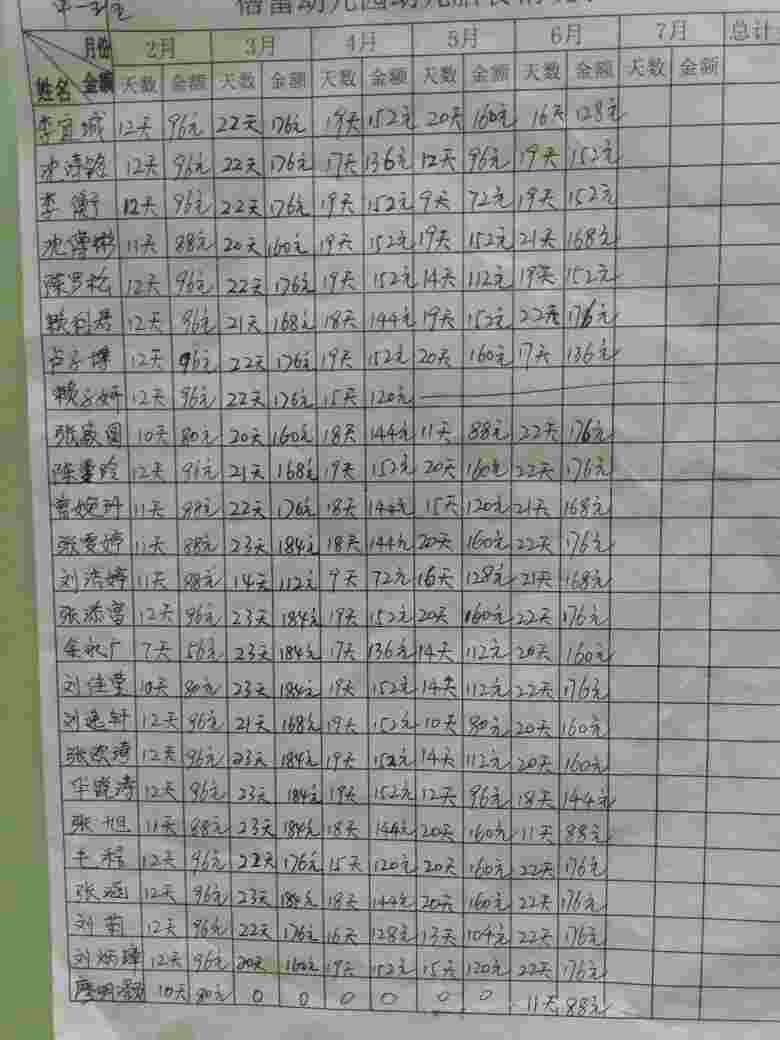 月份 2月 3月 4月 5月 6月 7月 总计
姓名 金额 天数 金额 天数 金额 天数 金额 天数 金额 天数 金额 天数 金额
李宜城 12天 96元 22天 176元 19天 152元 20天 160元 16天 128元
12天 96元 22天 176元 17天 136元 12天 96元 19天 152元
李 12天 96元 22天 176元 19天 152元 9天 72元 19天 152元
沈 11天 88元 20天 160元 19天 152元 19天 152元 21天 168元
陈罗松 12天 96元 22天 176元 19天 152元 14天 112元 19天 152元
赖科君 12天 96元 21天 168元 18天 144元 19天 152元 22天 176元
12天 96元 22天 176元 19天 152元 20天 160元 17天 136元
赖子妍 12天 96元 22天 176元 15天 120元
张 10天 80元 20天 160元 18天 144元 11天 88元 22天 176元
陈 12天 96元 21天 168元 19天 152元 20天 160元 22天 176元
曹婉 11天 88元 22天 176元 18天 144元 15天 120元 21天 168元
张雯婷 11天 88元 23天 184元 18天 144元 20天 160元 22天 176元
刘浩婷 11天 88元 14天 112元 9天 72元 16天 128元 21天 168元
张添富 12天 96元 23天 184元 19天 152元 20天 160元 22天 176元
7天 56元 23天 184元 17天 136元 14天 112元 20天 160元
刘佳莹 10天 80元 23天 184元 19天 152元 14天 112元 22天 176元
刘逸轩 12天 96元 21天 168元 19天 152元 10天 80元 20天 160元
张 涛 12天 96元 23天 184元 19天 152元 14天 112元 20天 160元
华 涛 12天 96元 23天 184元 19天 152元 12天 96元 18天 144元
张旭 11天 88元 23天 184元 18天 144元 20天 160元 11天 88元
毛程 12天 96元 22天 176元 15天 120元 20天 160元 22天 176元
张涵 12天 96元 23天 184元 18天 144元 20天 160元 22天 176元
刘菊 12天 96元 22天 176元 16天 128元 13天 104元 22天 176元
刘炳璋 12天 96元 20天 160元 19天 152元 15天 120元 22天 176元
廖明灏 10天 80元 0 0 0 0 0 0 11天 88元